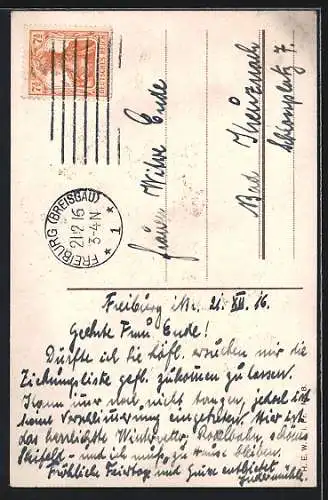 7½ 7½
DEUTSCHES REICH
FREIBURG (BREISGAU)
21.12.16
3-4 N
* 1 *
Frau Witwe Ende
Bad Kreuznach
Schlossplatz 7.
Freiburg i/Br. 21. XII. 16.
Geehrte Frau Ende!
Dürfte ich Sie höfl. ersuchen mir die
Ziehungsliste gefl. zukommen zu lassen.
nur nicht sagen, jedoch ist
keine Verschlimmerung eingetreten. Hier ist
das herrlichste Winterwetter, Rodelbahn, schönes
Skifeld - und ich muss zu Hause bleiben.
Fröhliche Feiertage und Grüsse entbietet
H. E. W.